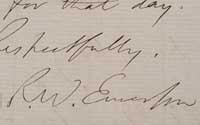 for that day.
Respectfully,
R. W. Emerson